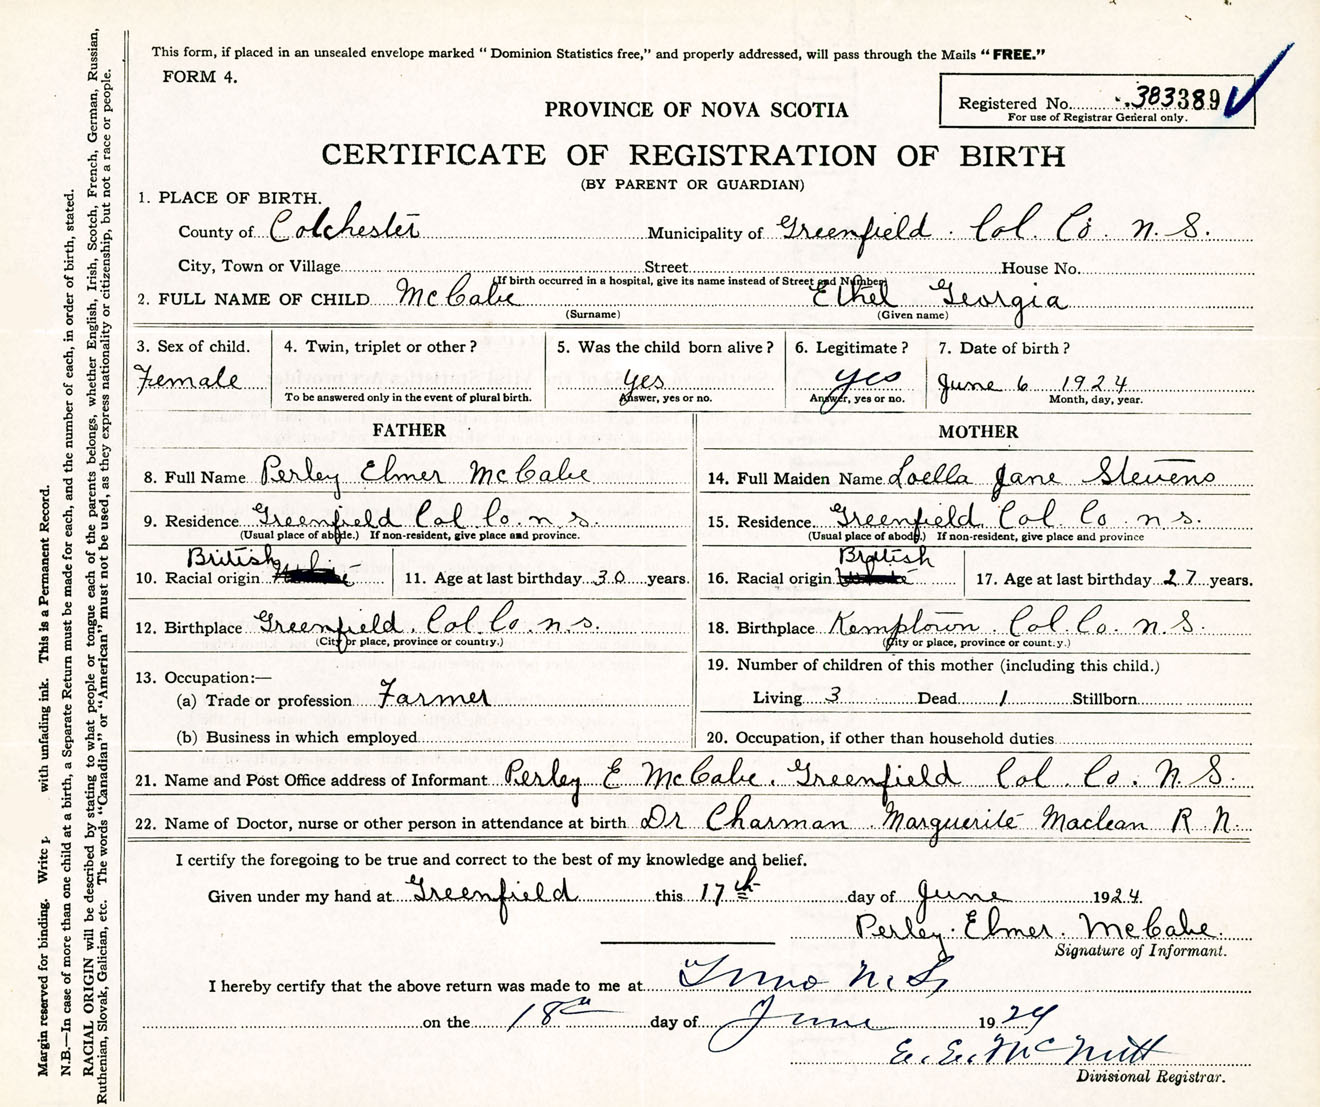 This form, if placed in an unsealed envelope marked “ Dominion Statistics free,” and properly addressed, will pass through the Mails “FREE.”
FORM 4.
Registered No. 383389
For use of Registrar General only.
PROVINCE OF NOVA SCOTIA
CERTIFICATE OF REGISTRATION OF BIRTH
(BY PARENT OR GUARDIAN)
1. PLACE OF BIRTH.
County of Colchester Municipality of Greenfield. Col. Co. N. S.
City, Town or Village Street House No.
(If birth occurred in a hospital, give its name instead of Street and Number)
2. FULL NAME OF CHILD McCabe Ethel Georgia
(Surname) (Given name)
3. Sex of child. 4. Twin, triplet or other? 5. Was the child born alive? 6. Legitimate? 7. Date of birth?
Female yes yes June 6 1924
To be answered only in the event of plural birth. Answer, yes or no. Answer, yes or no. Month, day, year.
FATHER
8. Full Name Perley Elmer McCabe
9. Residence Greenfield Col Co. n s.
(Usual place of abode.) If non-resident, give place and province.
British
10. Racial origin 11. Age at last birthday 30 years.
12. Birthplace Greenfield. Col. Co. n. s.
(City or place, province or country.)
13. Occupation:—
(a) Trade or profession Farmer
(b) Business in which employed
MOTHER
14. Full Maiden Name Loella Jane Stevens
15. Residence Greenfield. Col. Co. n s.
(Usual place of abode.) If non-resident, give place and province
British
16. Racial origin 17. Age at last birthday 27 years.
18. Birthplace Kemptown. Col. Co. n. S.
(City or place, province or country.)
19. Number of children of this mother (including this child.)
Living 3 Dead 1 Stillborn
20. Occupation, if other than household duties
21. Name and Post Office address of Informant Perley E McCabe. Greenfield Col. Co. N. S.
22. Name of Doctor, nurse or other person in attendance at birth Dr Charman Marguerite Maclean R. N.
I certify the foregoing to be true and correct to the best of my knowledge and belief.
Given under my hand at Greenfield this 17th day of June 1924.
Perley. Elmer. McCabe.
Signature of Informant.
I hereby certify that the above return was made to me at Truro N. S.
on the 18th day of June 1924
E. E. McNutt
Divisional Registrar.
Margin reserved for binding. Write with unfading ink. This is a Permanent Record.
N.B.—In case of more than one child at a birth, a Separate Return must be made for each, and the number of each, in order of birth, stated.
RACIAL ORIGIN will be described by stating to what people or tongue each of the parents belongs, whether English, Irish, Scotch, French, German, Russian,
Ruthenian, Slovak, Galician, etc. The words “Canadian” or “American” must not be used, as they express nationality or citizenship, but not a race or people.